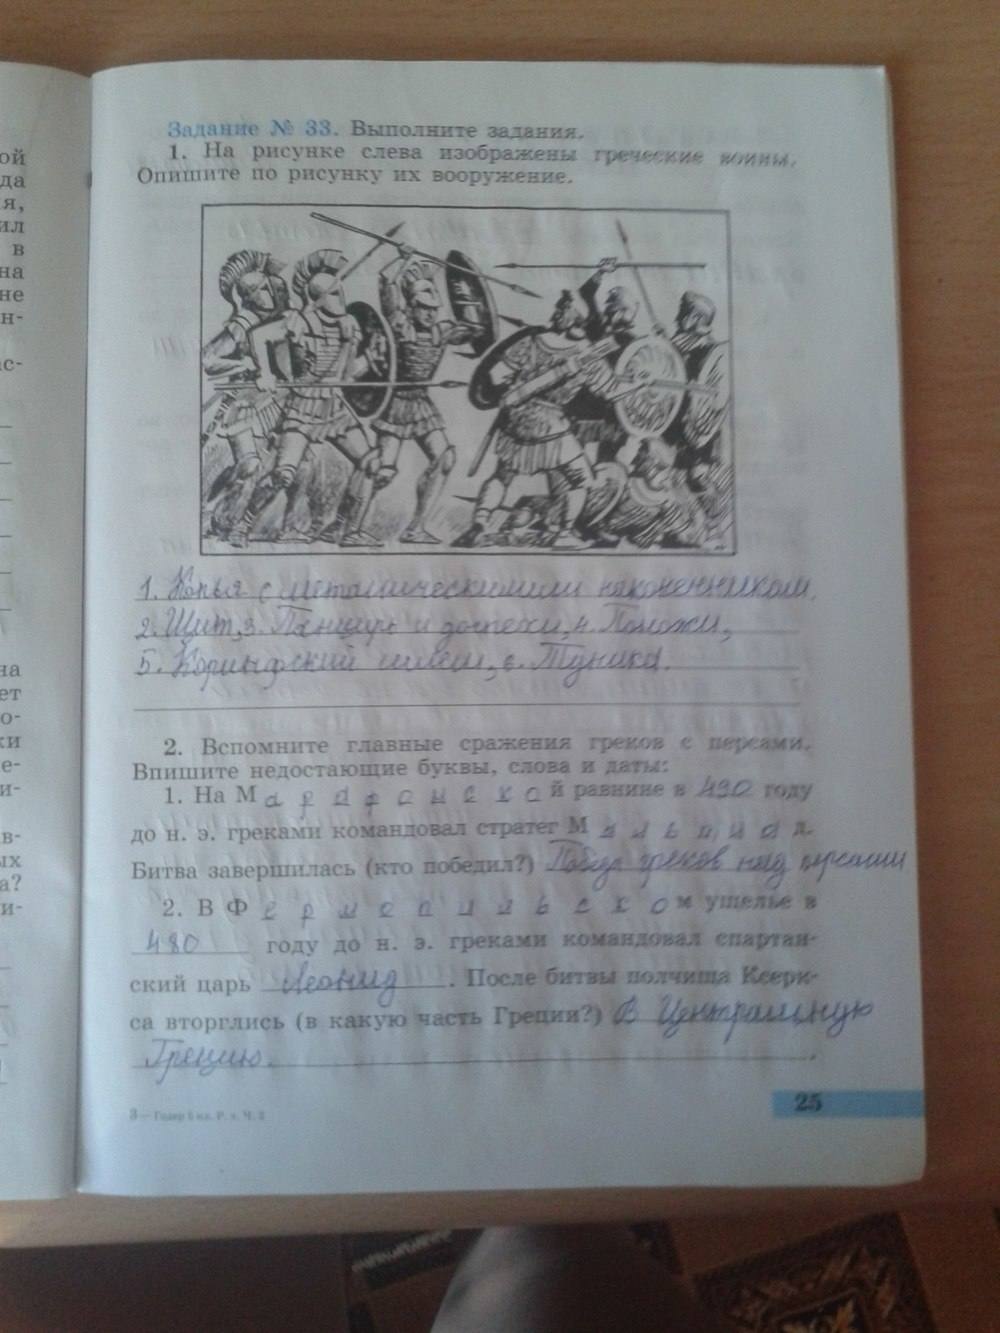 ой
да
я,
ил
в
на
не
н-
ас-
на
ет
о-
ки
е-
и-
ав-
ых
а?
и-
Задание № 33. Выполните задания.
1. На рисунке слева изображены греческие воины.
Опишите по рисунку их вооружение.
1. Копья с металическимили наконенником.
2. Щит, 3. Панцирь и доспехи, 4. Поножи,
5. Коринфский шлем, 6. Туника.
2. Вспомните главные сражения греков с персами.
Впишите недостающие буквы, слова и даты:
1. На Марафонской равнине в 490 году
до н. э. греками командовал стратег М д.
Битва завершилась (кто победил?) Победа греков над персами
2. В Фермопильском ущелье в
480 году до н. э. греками командовал спартан-
ский царь Леонид. После битвы полчища Ксерк-
са вторглись (в какую часть Греции?) В Центральную
Грецию.
3— Годер 5 кл. Р. т. Ч. 2
25